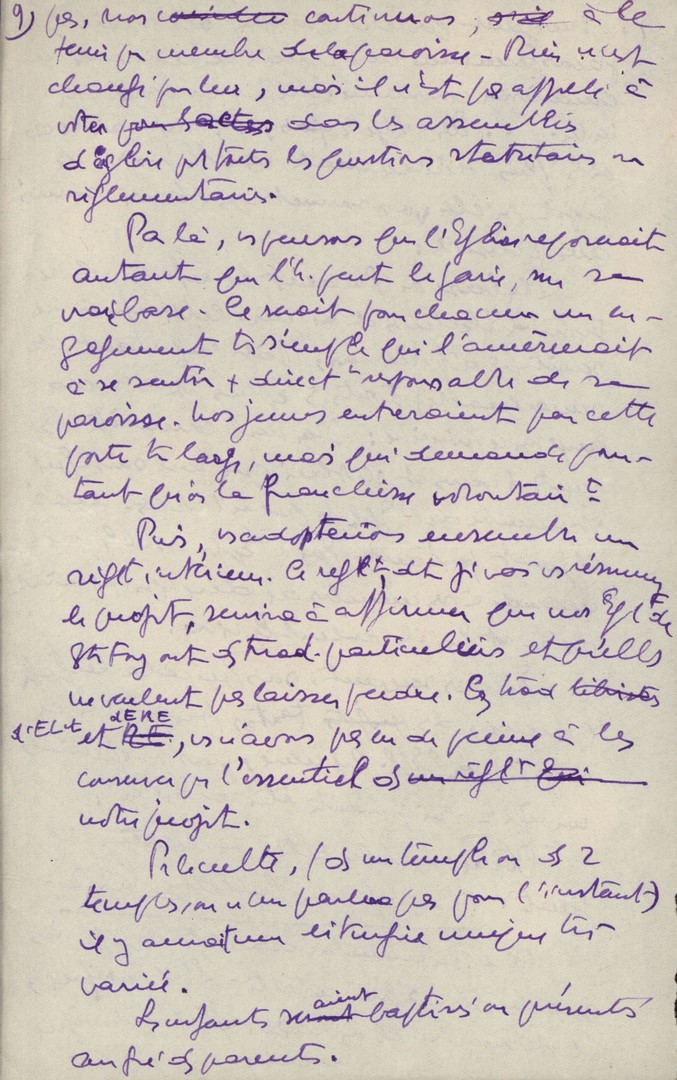 9) pas, nous continuerons, à le
tenir pr membre de la paroisse - Rien n'est
changé pr lui, mais il n'est pas appelé à
voter dans les assemblées
d'église pr toutes les questions statutaires ou
réglementaires.
Par là, ns pensons que l'Eglise reposerait
autant que l'h. peut le faire, sur sa
vraie base. Ce serait pour chacun un en-
gagement ts simple qui l'amènerait
à se sentir + direct^t responsable de sa
paroisse. Nos jeunes entreraient par cette
porte ts large, mais qui demande pour-
tant qu'on la franchisse volontair^t.
Puis, ns adopterions ensemble un
règl^t intérieur. Ce règl^t, dt je vais vs résumer
le projet, servira à affirmer que nos Egl^es de
ont des trad. particulières et qu'elles
ne veulent pas laisser perdre. Ces trad
d'EL et et d'ERE, ns n'avons pas eu de peine à les
conserver pr l'essentiel ds
notre projet.
Pr le culte, (ds un temple ou ds 2
temples, on n'en parlera pas pour l'instant)
il y aurait une liturgie unique très
variée.
Les enfants seraient baptisés ou présentés
au gré des parents.